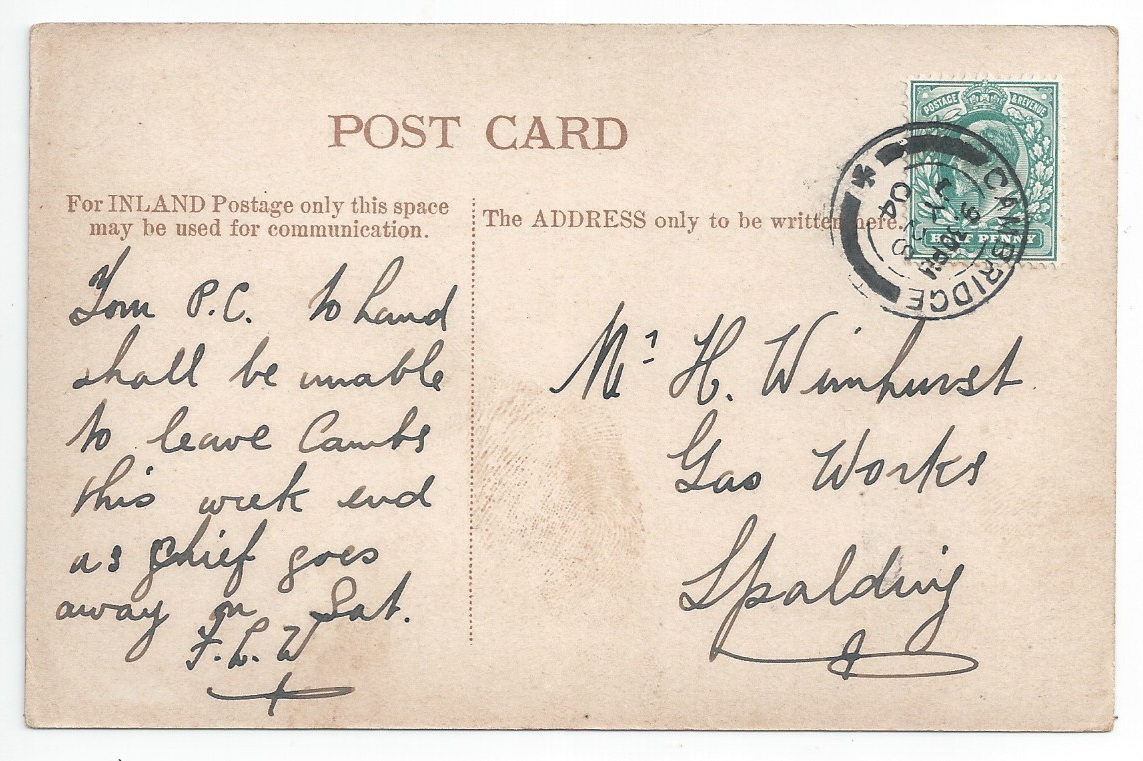 POST CARD
For INLAND Postage only this space
may be used for communication.
The ADDRESS only to be written here.
POSTAGE & REVENUE
HALF PENNY
CAMBRIDGE
9 30 PM
JY 28
04
Your P.C. to hand
shall be unable
to leave Cambs
this week end
as chief goes
away on Sat.
F. L. W
Mr H. Wimhurst
Gas Works
Spalding